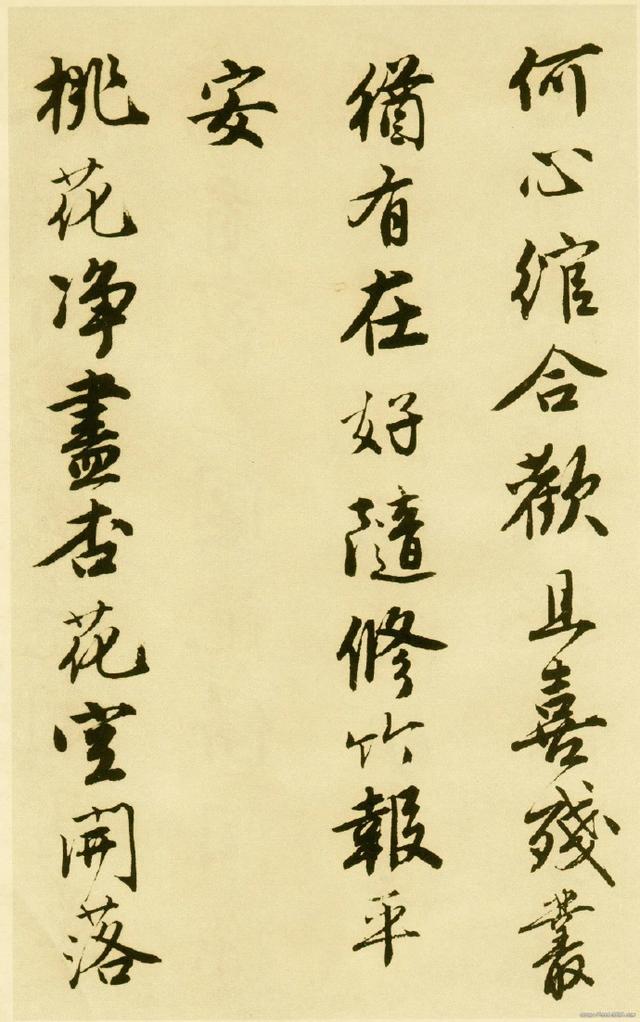 何心綰合歡且喜殘叢
猶有在好隨修竹報平
安
桃花淨盡杏花空開落